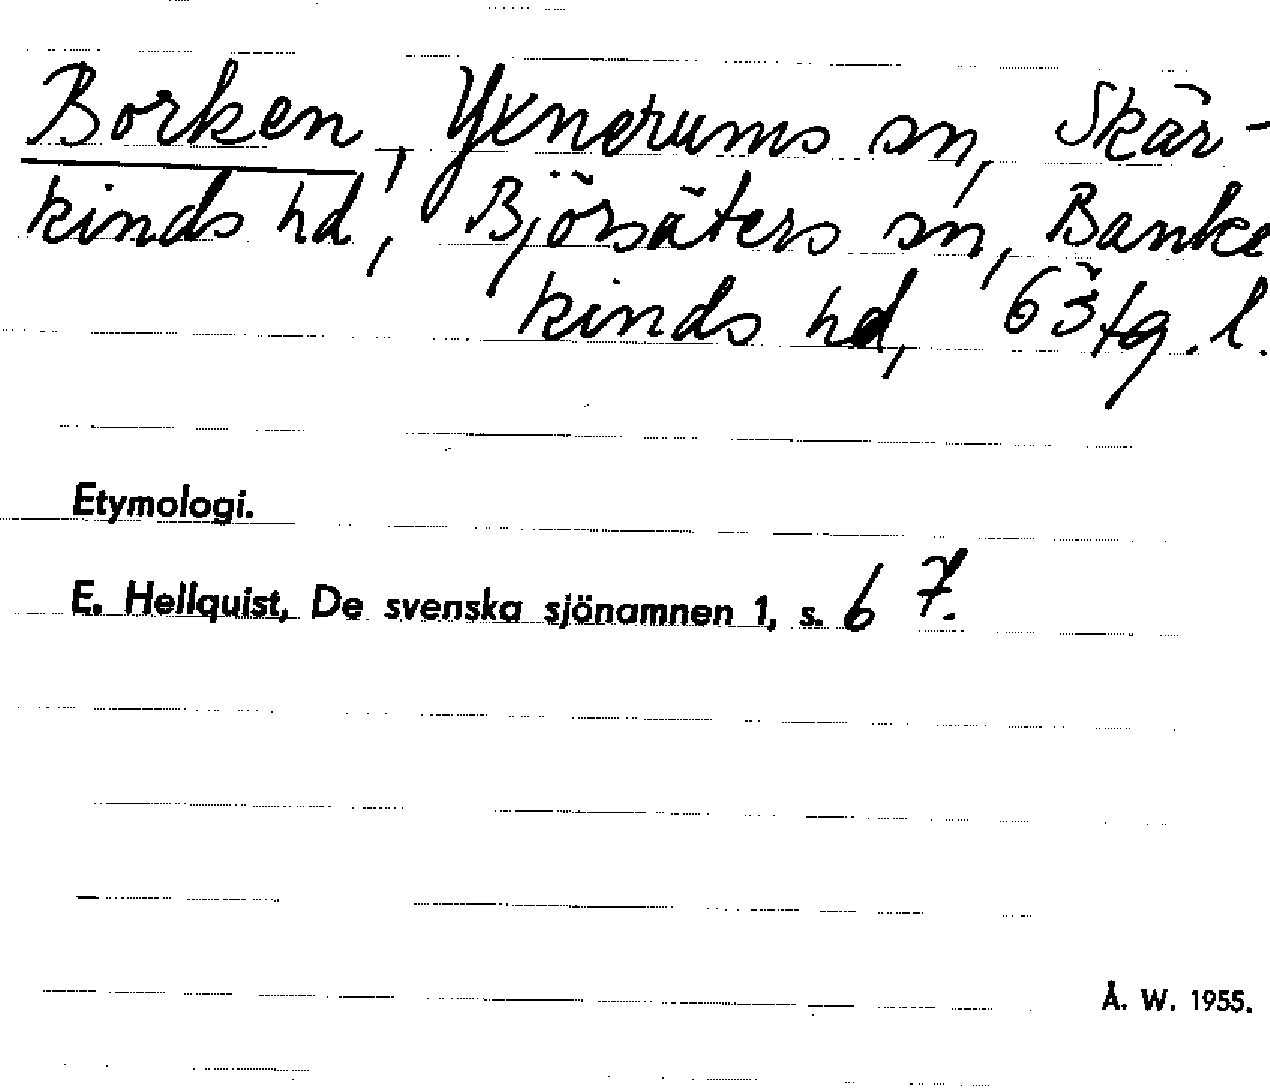 Borken, Yxnerums sn, Skär-
kinds hd, Björsäters sn, Banke
kinds hd, Östg. l.
Etymologi.
E. Hellquist, De svenska sjönamnen 1, s. 67.
Å. W. 1955.